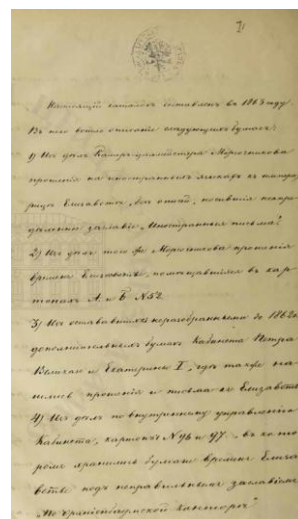 Настоящій каталогъ составленъ въ 1863 году.
Въ него вошло описаніе слѣдующихъ бумагъ:
1) Изъ дѣлъ Камеръ-цалмейстера Морочникова
прошенія на иностранныхъ языкахъ къ импера-
рицѣ Елизаветѣ,
заглавіе „Иностранныя письма“.
2) Изъ дѣлъ того же Морочникова прошенія
времени Елизаветы, помѣщавшіяся въ кар-
тонахъ А. и Б. N52.
3) Изъ остававшихся неразобранными до 1862
дополнительныхъ бумагъ Кабинета Петра
Великаго и Екатерины I, гдѣ также на-
шлись прошенія и письма къ Елизаветѣ
4) Изъ дѣлъ по внутреннему управленію
Кабинета, картоны N96 и 97, въ кото
рыхъ хранились бумаги времени Елиза
веты подъ неправильнымъ заглавіемъ
„По Ораніенбаумской Конторѣ“